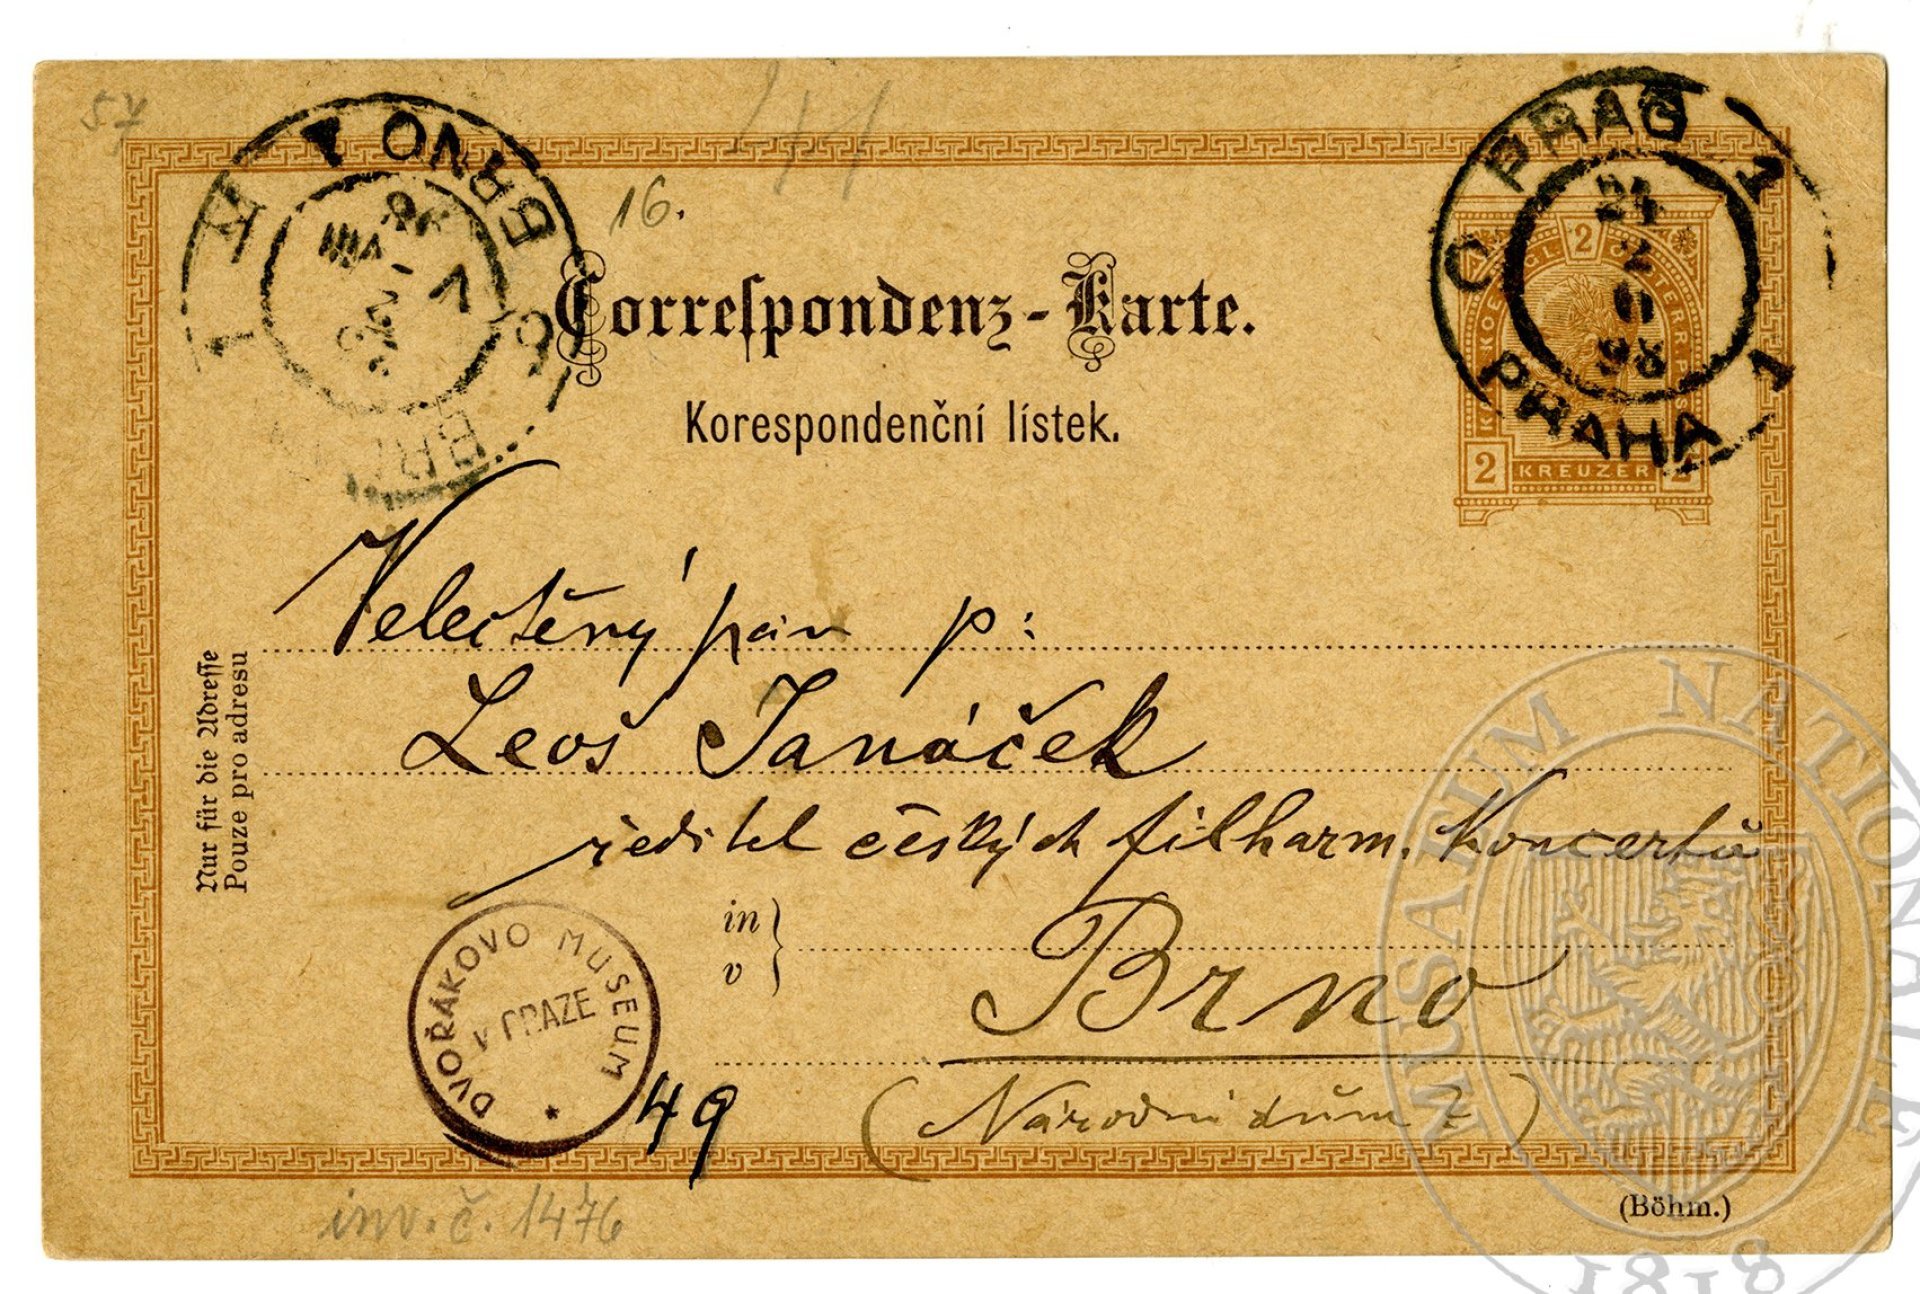 57
44
16.
BRNO
C PRAG 1
24
2
6
98
PRAHA 1
2
KREUZER
2
2
Correſpondenz-Karte.
Korespondenční lístek.
Velectěný pán p:
Leoš Janáček
ředitel českých filharm. Koncertů
Nur für die Adreſſe
Pouze pro adresu
in
v
Brno
(Národní dům)
DVOŘÁKOVO MUSEUM
V PRAZE
49
inv. č. 1476
(Böhm.)
MUSAEUM NATIONALE
1818